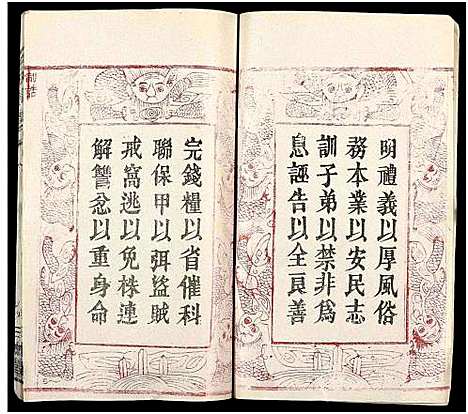 明禮義以厚風俗
務本業以安民志
訓子弟以禁非爲
息誣告以全良善
完錢糧以省催科
聯保甲以弭盜賊
戒窩逃以免株連
解讐忿以重身命